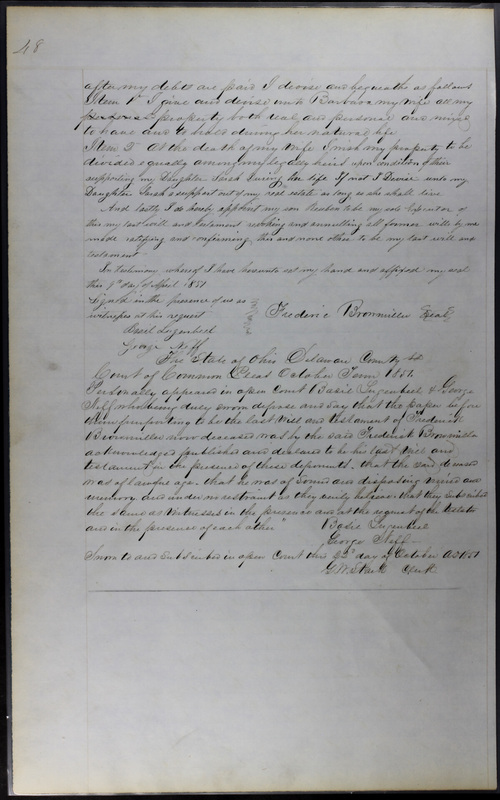 48
after my debts are paid I devise and bequeath as follows
Item 1st I give and devise unto Barbara my wife all my
property both real and personal and mixed
to have and to hold during her natural life
Item 2d At the death of my wife I wish my property to be
divided equally among my legally heirs upon condition of their
supporting my Daughter Sarah During her life If not I Devise unto my
Daughter Sarah a support out of my real estate as long as she shall live
And lastly I do hereby appoint my son Reuben to be my sole Executor of
this my last will and testament revoking and annulling all former wills by me
made ratifying and confirming this and none other to be my last will and
testament
In testimony whereof I have hereunto set my hand and affixed my seal
this 9th day of April 1851
Signed in the presence of us as
witnesses at his request
Frederic Brownmiller Seal
Basil Lugenbeel
George Neff
The State of Ohio Delaware County ss
Court of Common Pleas October Term 1851.
Personally appeared in open Court Basil Lugenbeel & George
Neff who being duly sworn depose and say that the paper before
them purporting to be the last Will and testament of Frederick
Brownmiller now deceased was by the said Frederick Brownmiller
acknowledged published and declared to be his last Will and
testament in the presence of these deponents, that the said deceased
was of lawful age that he was of sound and disposing mind and
memory and under no restraint as they verily believe that they subscribed
the same as Witnesses in the presence and at the request of the testator
and in the presence of each other"
Basil Lugenbeel
George Neff
Sworn to and Subscribed in open Court this 22d day of October AD 1851
G W Stark Clerk